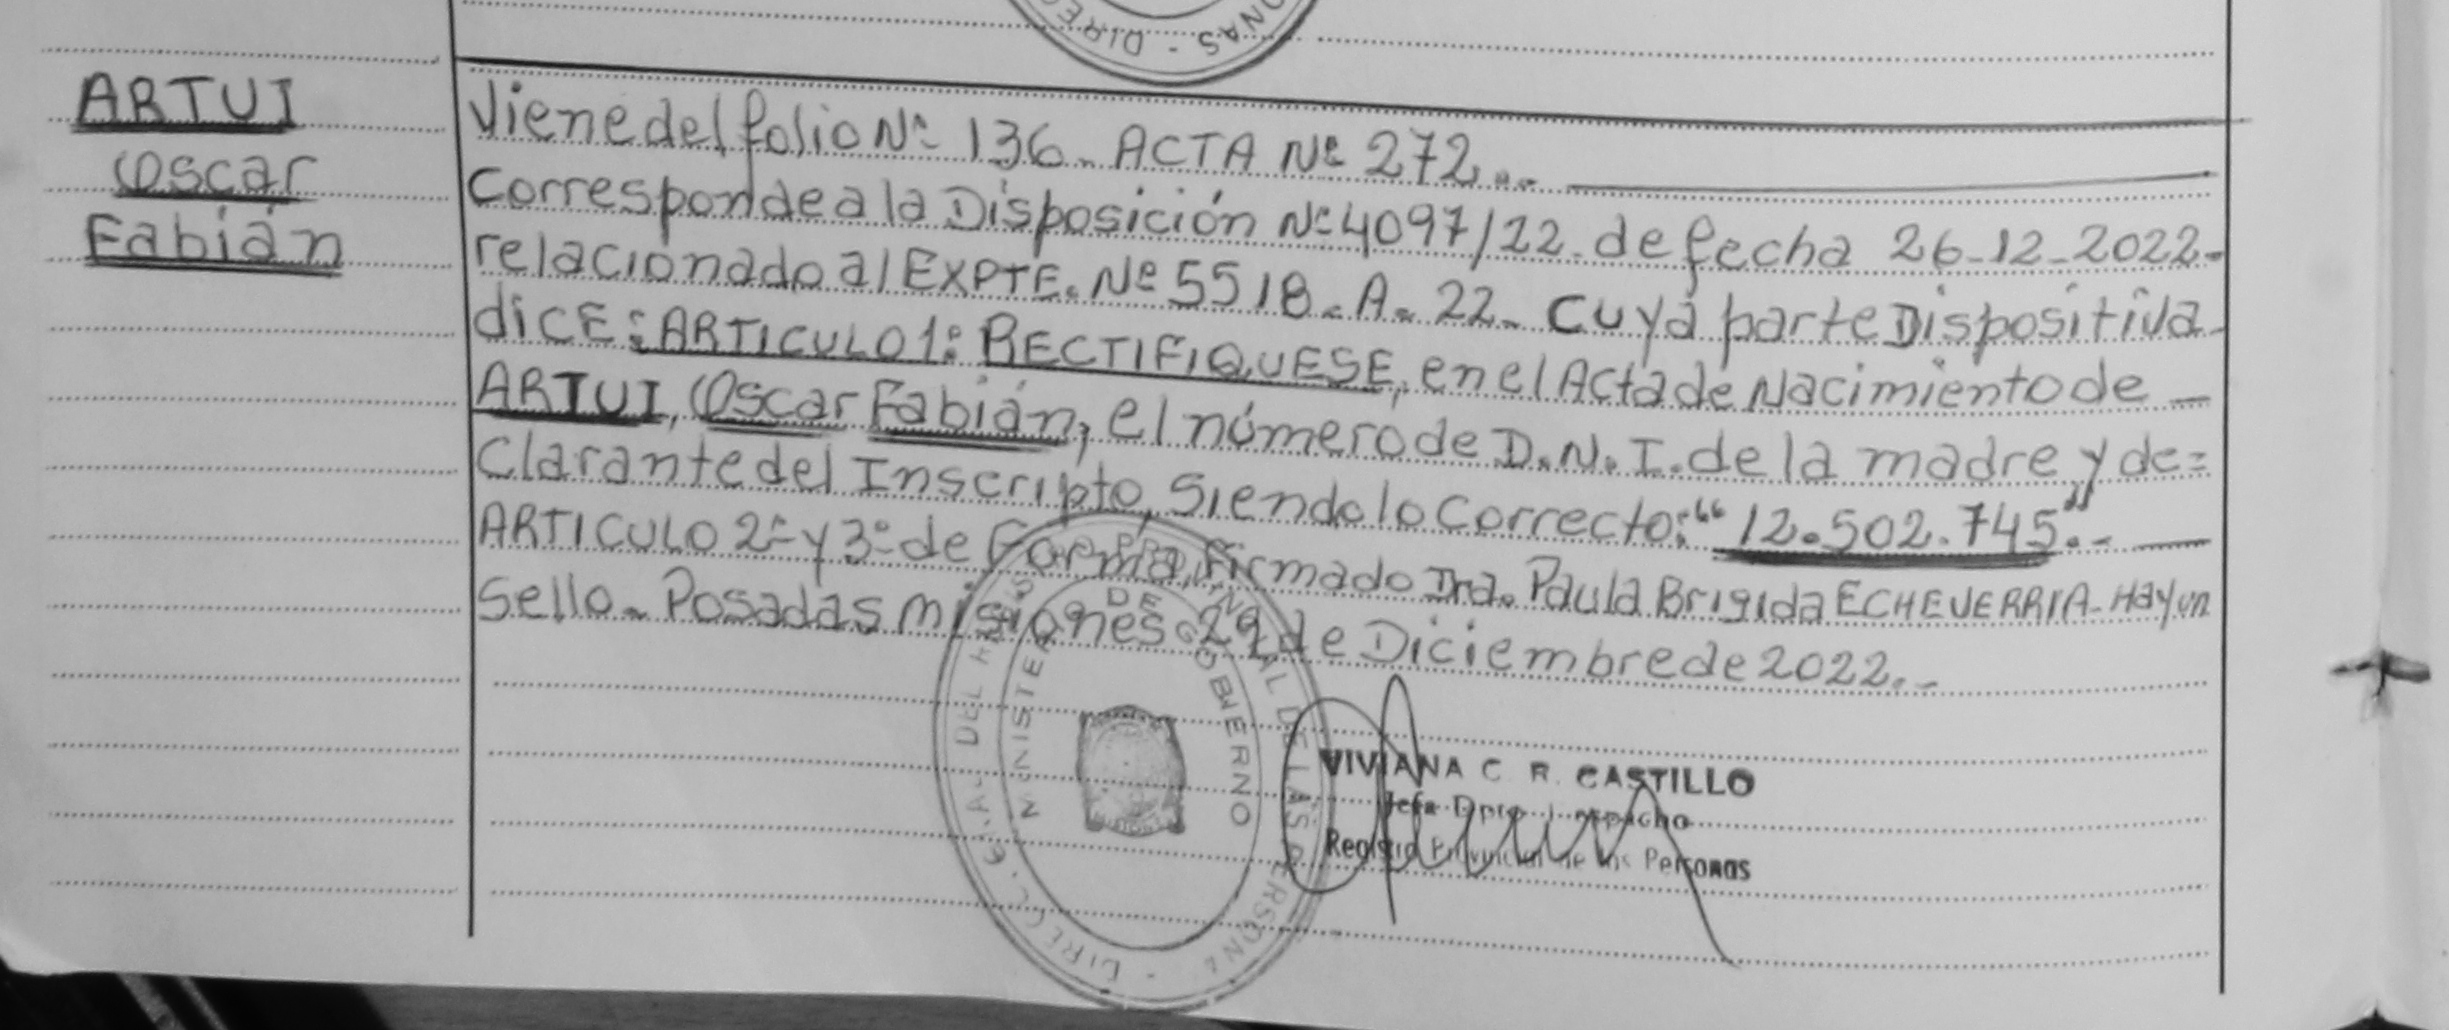 ONAS - DIREC
ARTUI
Oscar
Fabián
Viene del folio Nº 136. ACTA Nº 272..
Corresponde a la Disposición Nº 4097/22. de fecha 26-12-2022.
relacionado al EXPTE. Nº 5518. A. 22. Cuya parte Dispositiva
dice: ARTICULO 1: RECTIFIQUESE, en el Acta de Nacimiento de
ARTUI, Oscar Fabián, el número de D.N.I. de la madre y de=
clarante del Inscripto, siendo lo correcto: "12.502.745".-
ARTICULO 2º y 3º de Forma, firmado Dra. Paula Brigida ECHEVERRIA. Hay un
sello. Posadas misiones 29 de Diciembre de 2022.-
MINISTER DE GOBIERNO
VIVIANA C. R. CASTILLO
Jefa Dpto. Despacho
Registro Provincial de las Personas